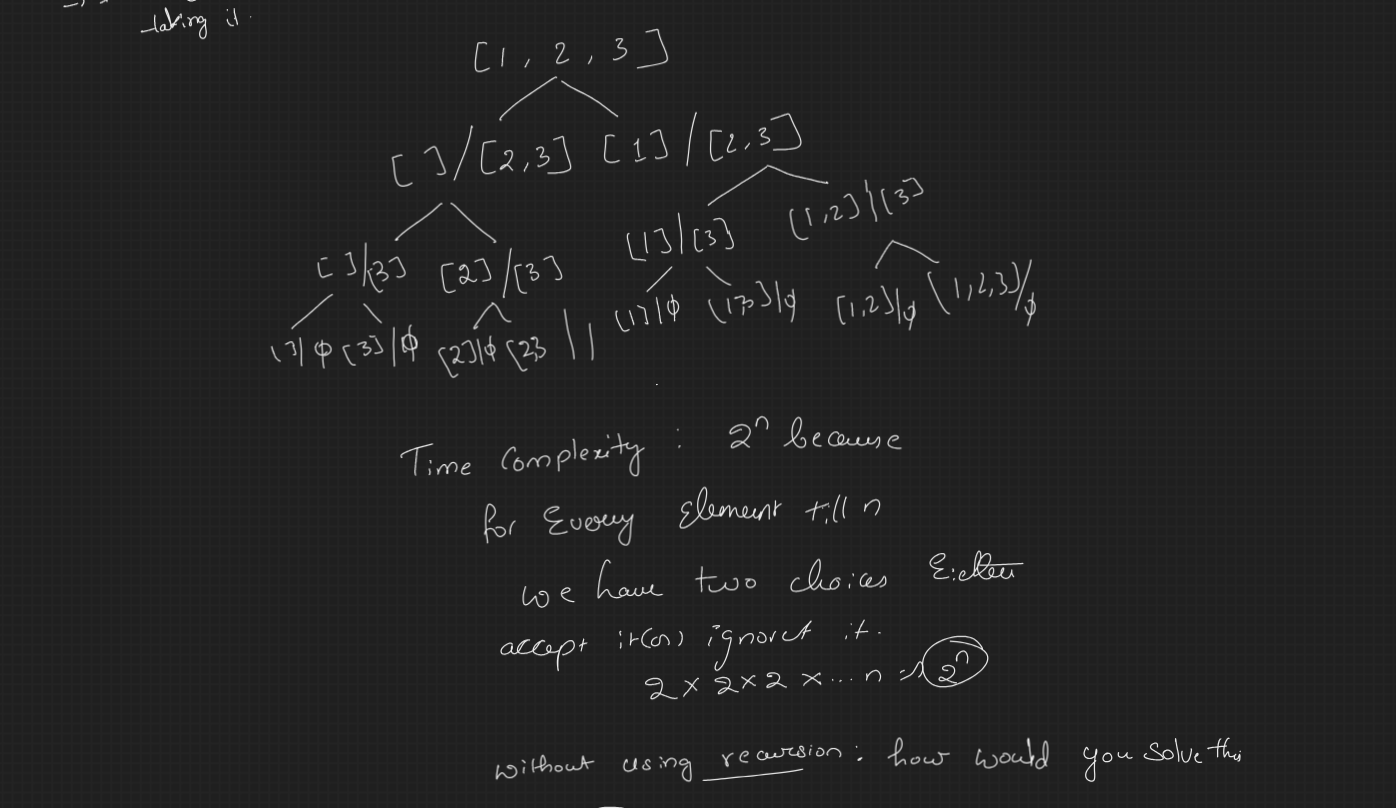 taking it.
[1, 2, 3]
[ ]/[2,3] [1]/[2,3]
[ ]/[3] [2]/[3] [1]/[3] [1,2]\[3]
[ ]|ϕ [3]|ϕ [2]|ϕ [2,3 || [1]|ϕ [1,3]|ϕ [1,2]|ϕ [1,2,3]/ϕ
Time Complexity : 2ⁿ because
for Every Element till n
we have two choices Either
accept it(or) ignore it.
2 x 2 x 2 x ... n = 2ⁿ
without using recursion : how would you solve this